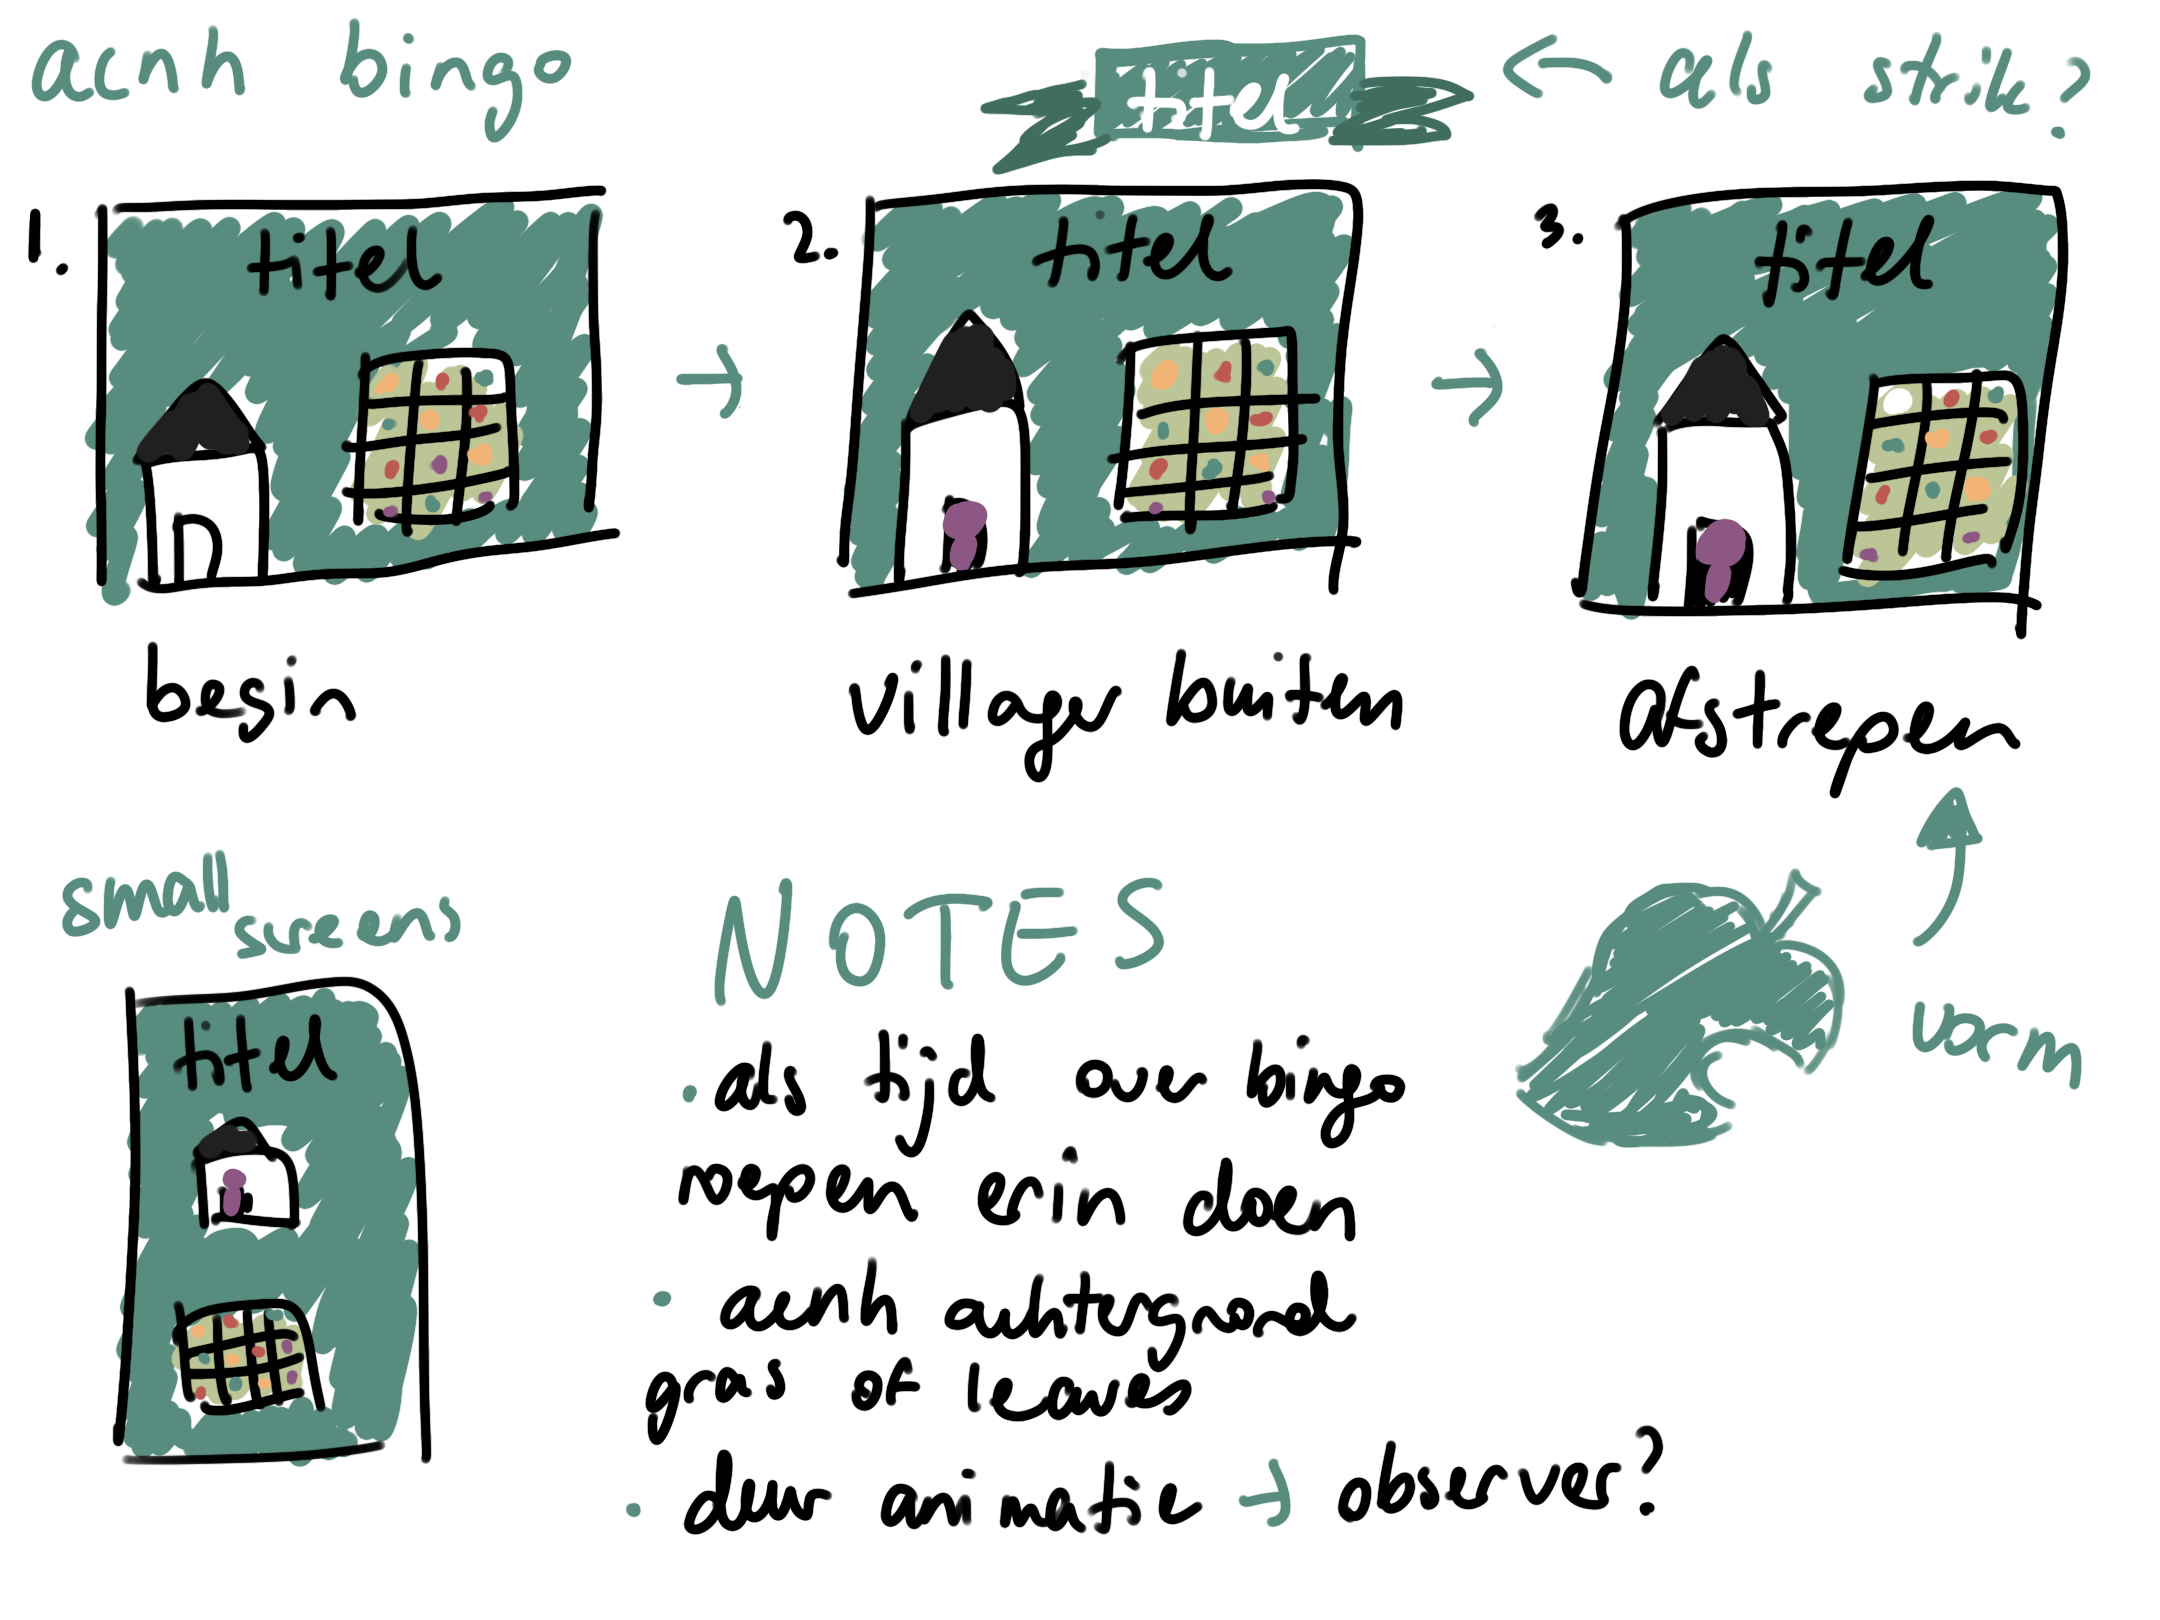 acnh bingo
titel ← als strik?
1. titel
2. titel
3. titel
begin
villager buiten
afstrepen
small
screens
titel
vorm
NOTES
• als tijd over bingo
roepen erin doen
• acnh achtergrond
gras of leaves
• deur animatie → observer?